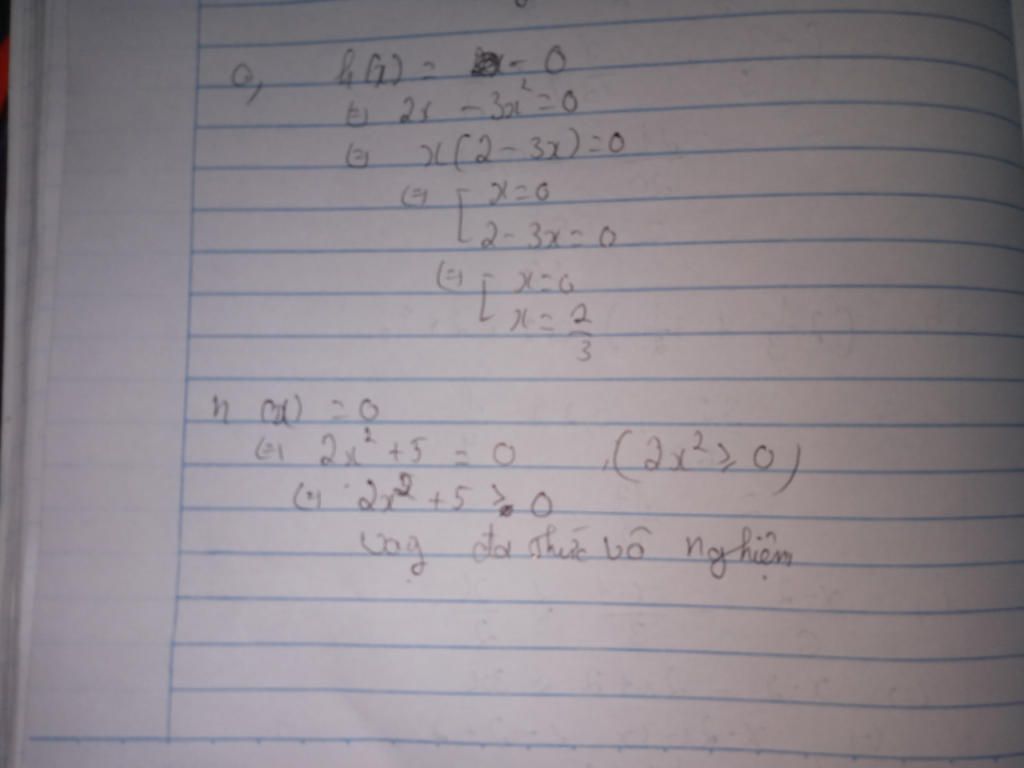 a, h(x) = 0
(=) 2x - 3x² = 0
(=) x(2 - 3x) = 0
(=) [ x = 0
2 - 3x = 0
(=) [ x = 0
x = 2/3
h (x) = 0
(=) 2x² + 5 = 0 , (2x² ≥ 0)
(=) 2x² + 5 ≥ 0
vay đa thức vô nghiệm